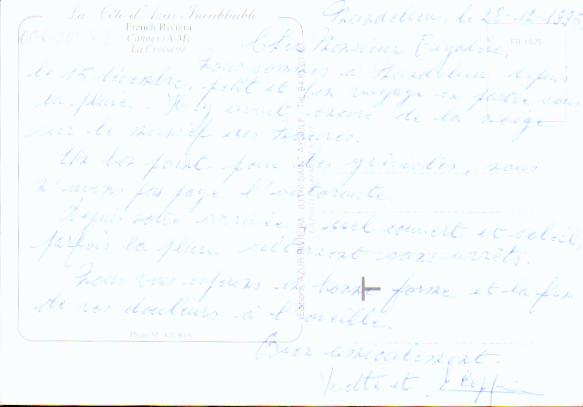 La Côte d'Azur Inoubliable
French Riviera
Cannes (A-M)
La Croisette
Mandelieu, le 28-12-1995
Cher Monsieur
Nous sommes à Mandelieu depuis
le 15 décembre, petit et bon voyage en partie sous
la pluie. Il y avait encore de la neige
sur le massif des Maures.
Un bon point pour les grévistes, nous
n'avons pas payé l'autoroute.
Depuis notre arrivée, ciel couvert et soleil
parfois la pluie alternent sans arrêts.
Nous vous espérons en bonne forme et la fin
de vos douleurs à l'oreille.
Bien amicalement.
Yvette et
Photo M.